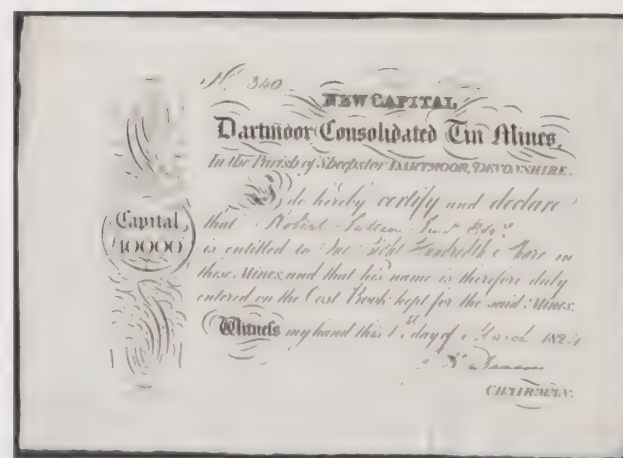 No. 340
NEW CAPITAL
Dartmoor Consolidated Tin Mines,
In the Parish of Sheepstor DARTMOOR, DEVONSHIRE.
I do hereby certify and declare
that Robert
is entitled to One Eight Hundredth Share in
these Mines, and that his name is therefore duly
entered on the Cost Book kept for the said Mines.
Witness my hand this 1st day of March 182
CHAIRMAN.
Capital
10000